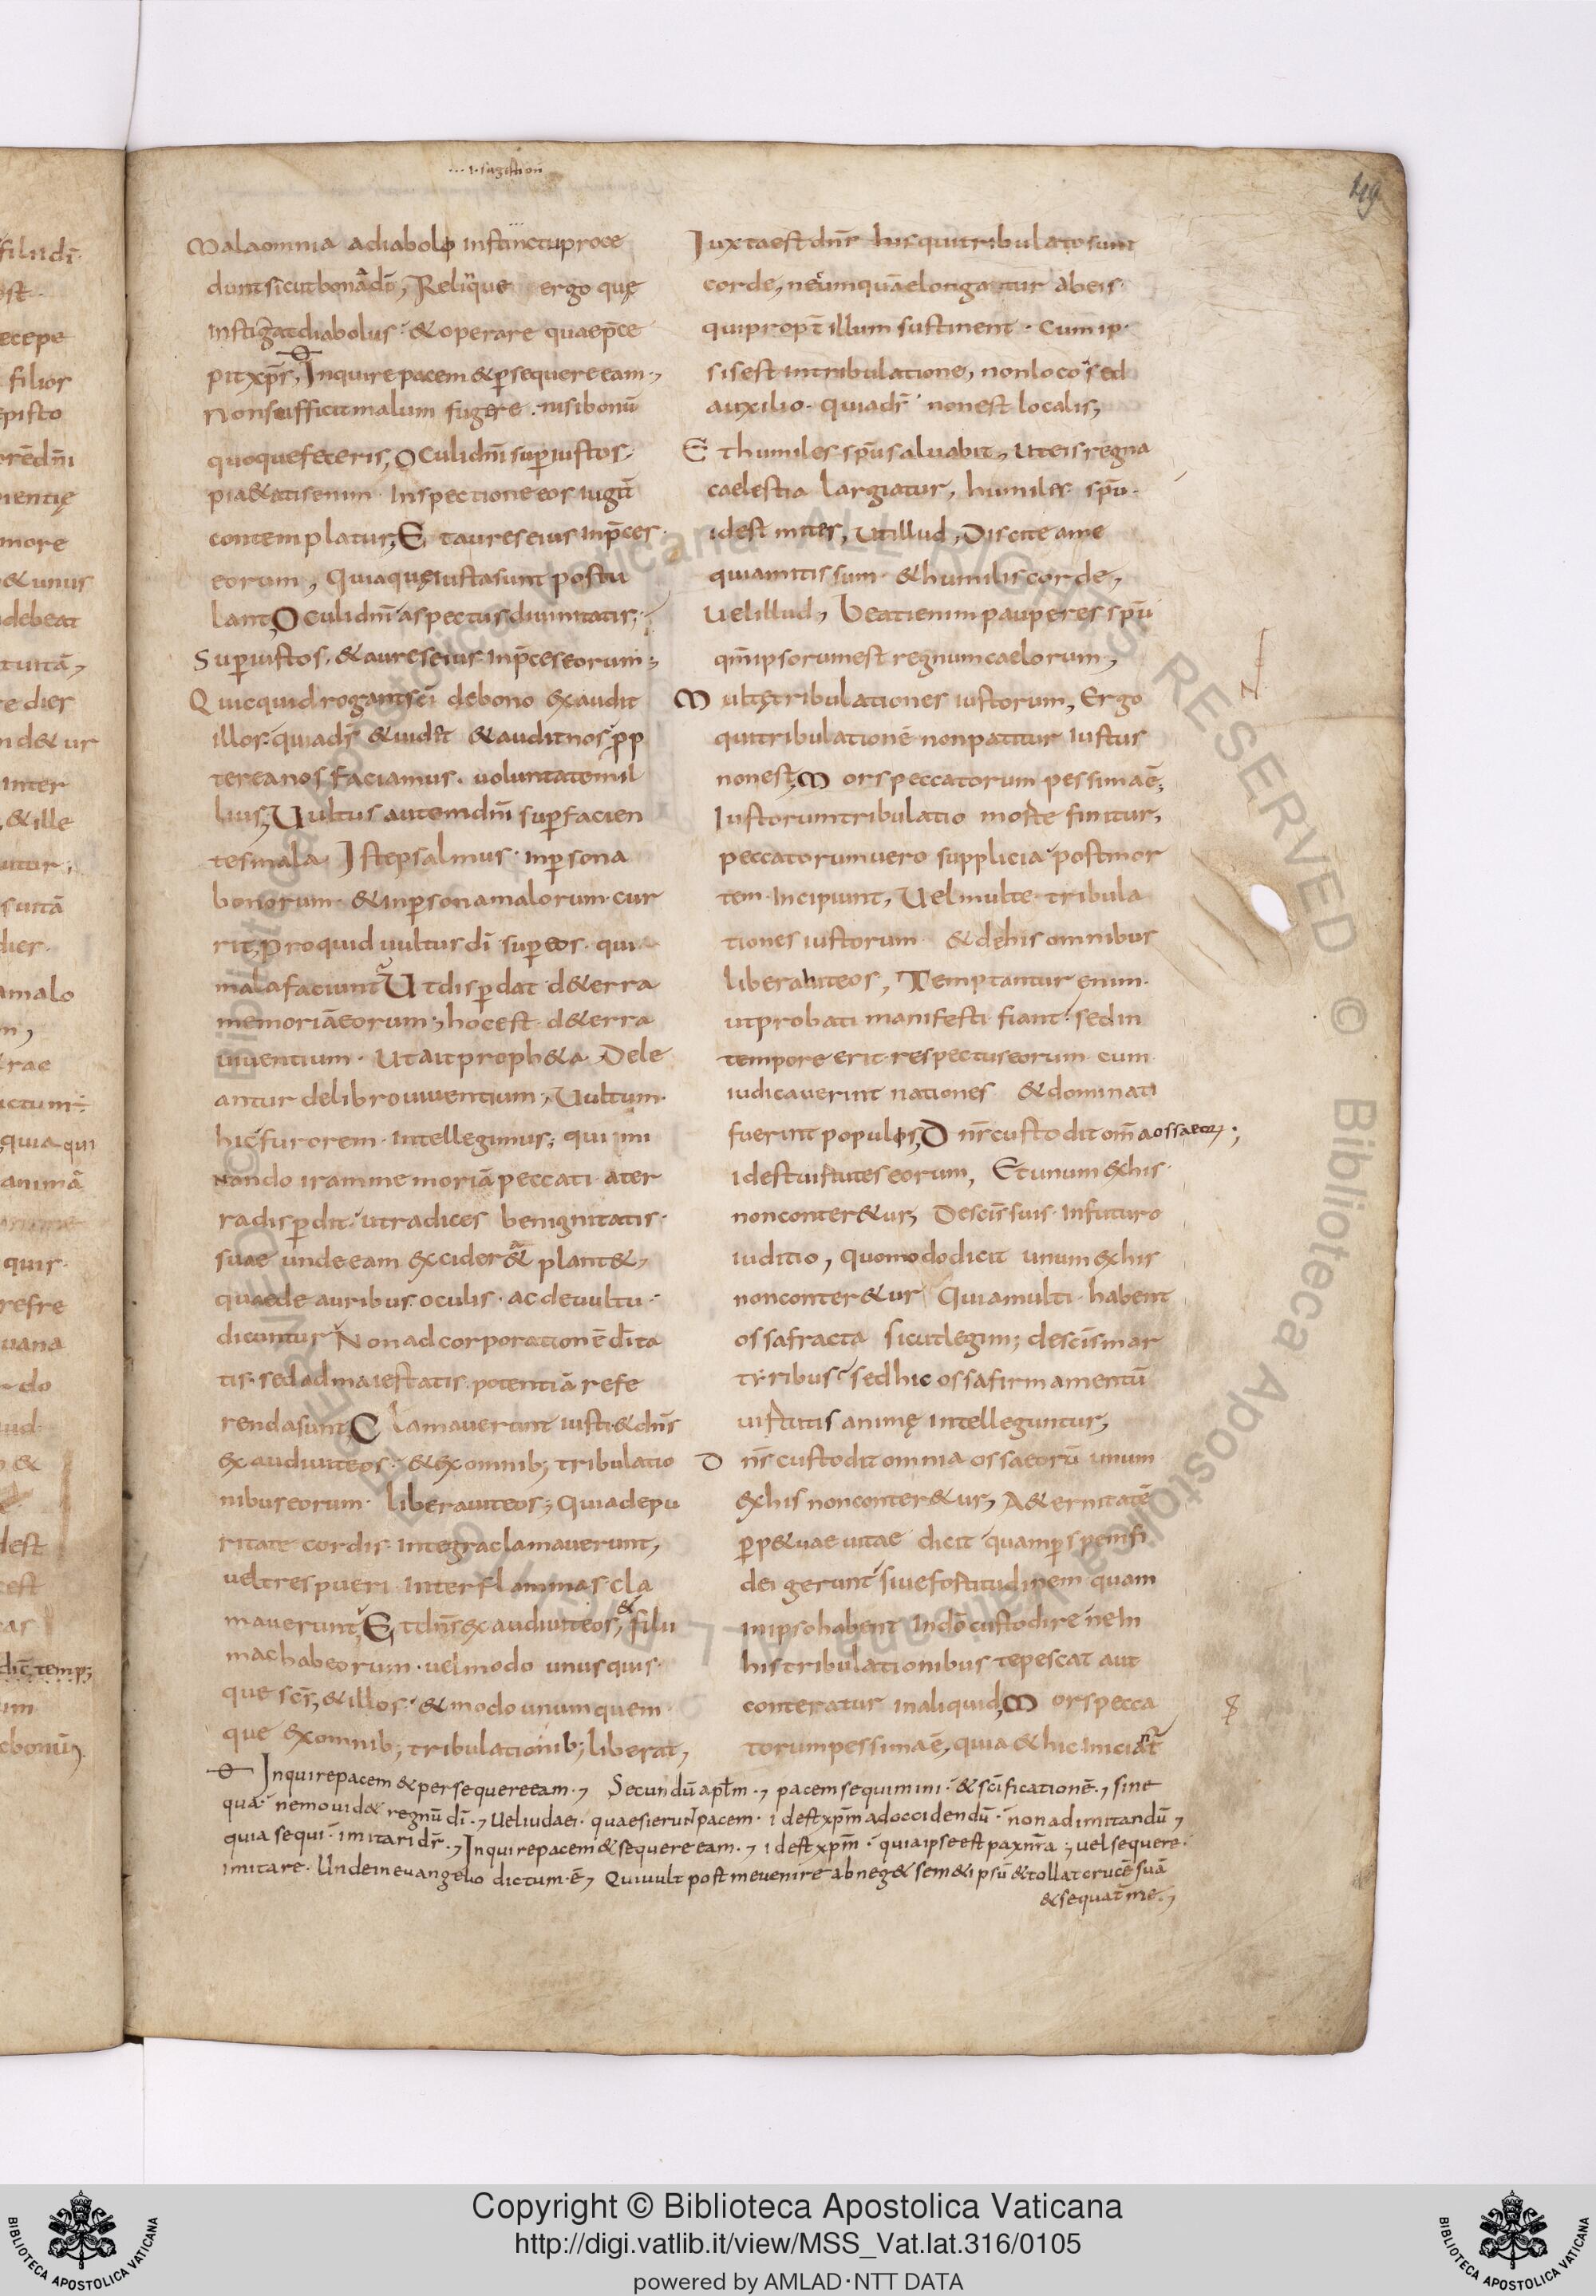 ··· i· sugestion
49
Mala omnia a diabolo instinctu proce
dunt sicut bona a dō, Relinque ergo quę
instigat diabolus· & operare quae p̄ce
pit xp̄s, Inquire pacem & p̱sequere eam·,
Non sufficit malum fugere· nisi bonū
quoque feceris, Oculi dn̄i sup̱ iustos·
pi&atis enim· inspectione eos iugit̄
contemplatur, Et aures eius in p̄ces·
eorum, Quia quę iusta sunt postu
lant, Oculi dn̄i aspectus divinitatis;
Sup̱ iustos, & aures eius in p̄ces eorum;
Quicquid rogant sc̄i de bono exaudit
illos· quia dš & uidet & audit nos prop
terea nos faciamus· uoluntatem il
lius, Uultus autem dn̄i sup̱ facien
tes mala· Iste psalmus· in p̱sona
bonorum· & in p̱sona malorum· cur
rit, Pro quid uultus dī sup̱ eos· qui
mala faciunt, Ut disp̱dat de t&erra
memoriā eorum; hoc est d&erra
uiuentium· Ut ait proph&a· Dele
antur de libro uiuentium, Uultum·
hic furorem· intellegimus; qui mi
nando iram memoriā peccati· a ter
ra disp̱dit· ut radices benignitatis·
suae unde eam excider& plant&,
quae de auribus oculis· ac de uultu·
dicuntur Non ad corporationē d̄ita
tis· sed ad maiestatis potentiā refe
renda sunt, Clamauerunt iusti· & dn̄s
exaudiuit eos· & ex omnib; tribulatio
nibus eorum· liberauit eos; Quia de pu
ritate cordis· integra clamauerunt,
uel tres pueri· inter flammas cla
mauerunt, Et dn̄s exaudiuit eos, & filii
machabeorum· uel modo unusquis·
que sc̄s, & illos· & modo unum quem
que ex omnib; tribulationib; liberat,
Iuxta est dn̄s his qui tribulato sunt
corde, ne umquā elongantur ab eis·
qui propt̄ illum sustinent· Cum ip·
sis est in tribulatione, non loco sed
auxilio· quia dš non est localis,
Et humiles sp̄u saluabit, Ut eis regna
caelestia largiatur, humiles sp̄u·
id est mites, Ut illud, Discite a me
quia mitis sum· & humilis corde,
Uel illud, Beati enim pauperes sp̄u
qm̄ ipsorum est regnum caelorum,
Multę tribulationes iustorum, Ergo
qui tribulationē non patitur iustus
non est, Mors peccatorum pessima ē;
Iustorum tribulatio morte finitur,
peccatorum uero supplicia post mor
tem· incipiunt, Uel multe tribula
tiones iustorum & de his omnibus
liberabit eos, Temptantur enim·
ut probati manifesti fiant· sed in
tempore erit respectus eorum cum
iudicauerint nationes & dominati
fuerint populos, Dn̄s custodit om̄a ossa eorum;
id est uirtutes eorum, Et unum ex his·
non conter&ur, De scīs suis· in futuro
iuditio, quomodo dicit unum ex his
non conter&ur Quia multi· habent
ossa fracta sicut legim; de scīs mar
tyribus· sed hic ossa firmamentū
uirtutis animę intelleguntur,
Dn̄s custodit omnia ossa eorū unum
ex his non conter&ur, A&ernitatē
p̱p&uae uitae dicit quam p̱ spem fi
dei gerunt siue fortitudinem quam
in ipso habent In dō custodire ne in
his tribulationibus tepescat aut
conteratur in aliquid, Mors pecca
torum pessima ē, quia & hic iniciant̄
Inquire pacem & persequere eam·, Secundū apłm·, pacem sequimini· & scīficationē·, sine
qua· nemo uid& regnū dī·, Uel iudaei· quaesierunt pacem· id est xp̄m ad occidendū· non ad imitandū,
quia sequi· imitari dr̄·, Inquire pacem & sequere eam·, id est xp̄m· quia ipse est pax nr̄a; uel sequere·
imitare· Unde in euangelio dictum· ē, Qui uult post me uenire abneg& sem&ipsū & tollat crucē suā
& sequat̄ me·,
Copyright © Biblioteca Apostolica Vaticana
http://digi.vatlib.it/view/MSS_Vat.lat.316/0105
powered by AMLAD·NTT DATA
BIBLIOTECA APOSTOLICA VATICANA
BIBLIOTECA APOSTOLICA VATICANA